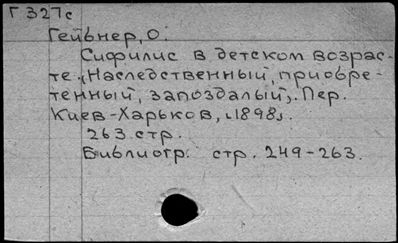 Г 327с
Гейьнер, О.
Сифилис в детском возрас-
те. (Наследственный, приобре-
тенный, запоздалый). Пер.
Киев-Харьков, "1898".
263 стр.
Библиогр: стр. 249-263.